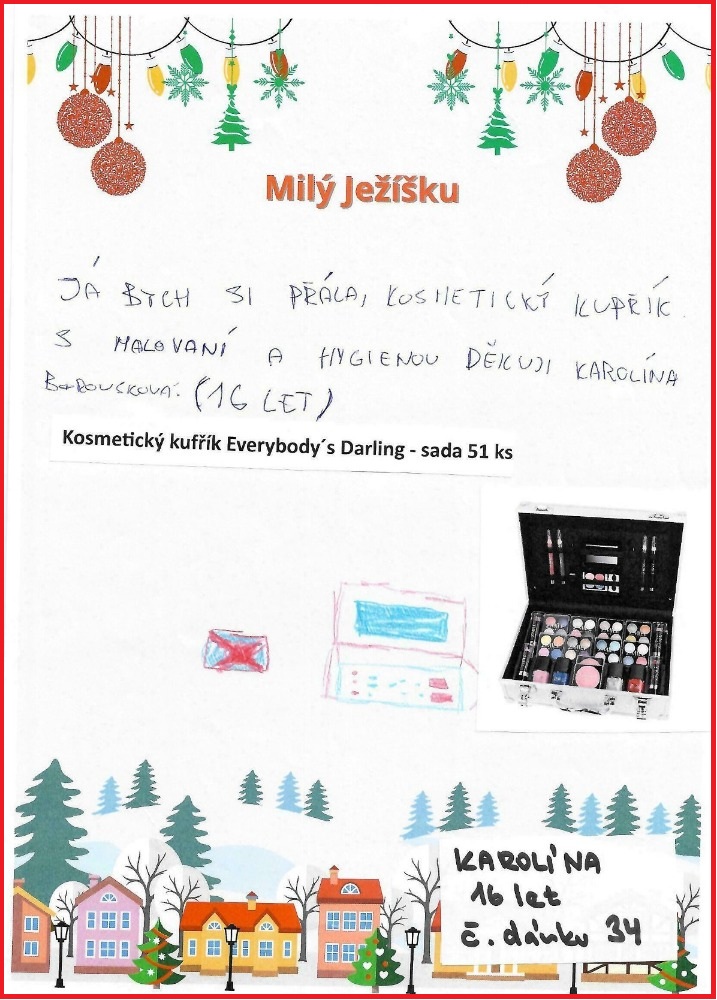 Milý Ježíšku
JÁ BYCH SI PŘÁLA, KOSMETICKÝ KUPŘÍK
S MALOVANÍ A HYGIENOU DĚKUJI KAROLÍNA
(16 LET)
Kosmetický kufřík Everybody´s Darling - sada 51 ks
KAROLÍNA
16 let
č. dánku 34